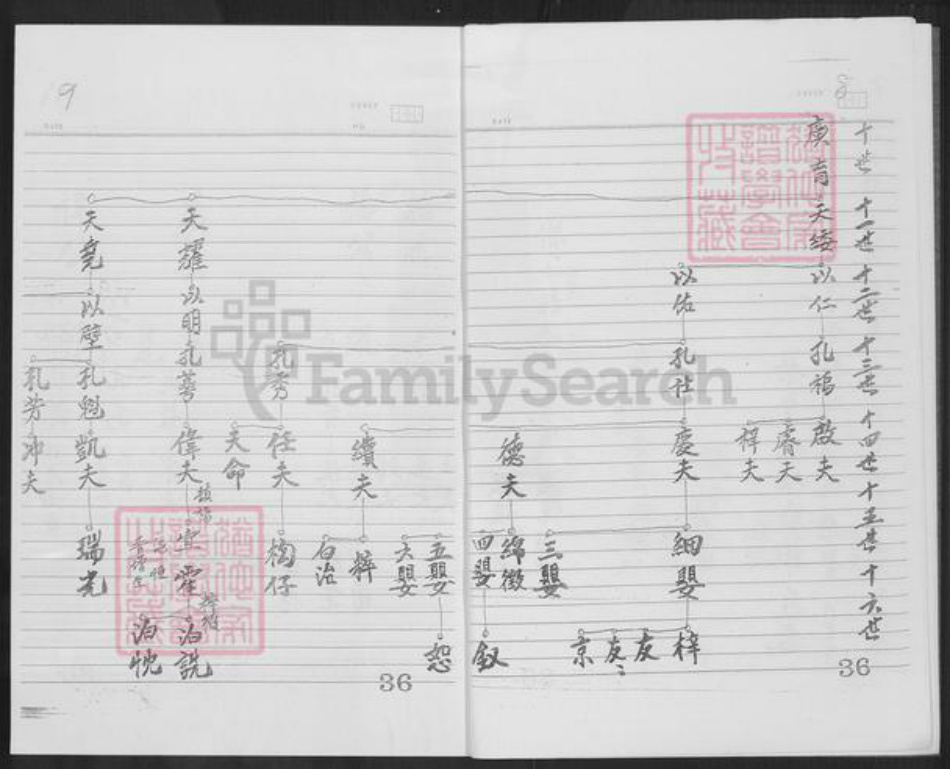 十世
十一世
十二世
十三世
十四世
十五世
十六世
庚育
天綬
以仁
孔
啟夫
睿夫
梓夫
以佑
孔社
慶夫
細嬰
梓
友
友
京
德夫
三嬰
綿徵
四嬰
釵
五嬰
六嬰
恕
續夫
梓
白治
孔秀
任夫
天命
構仔
天耀
以明
孔善
偉夫
宜霍
治
天堯
以壁
孔魁
凱夫
瑞光
孔芳
冲夫
9
8
36
36
FamilySearch